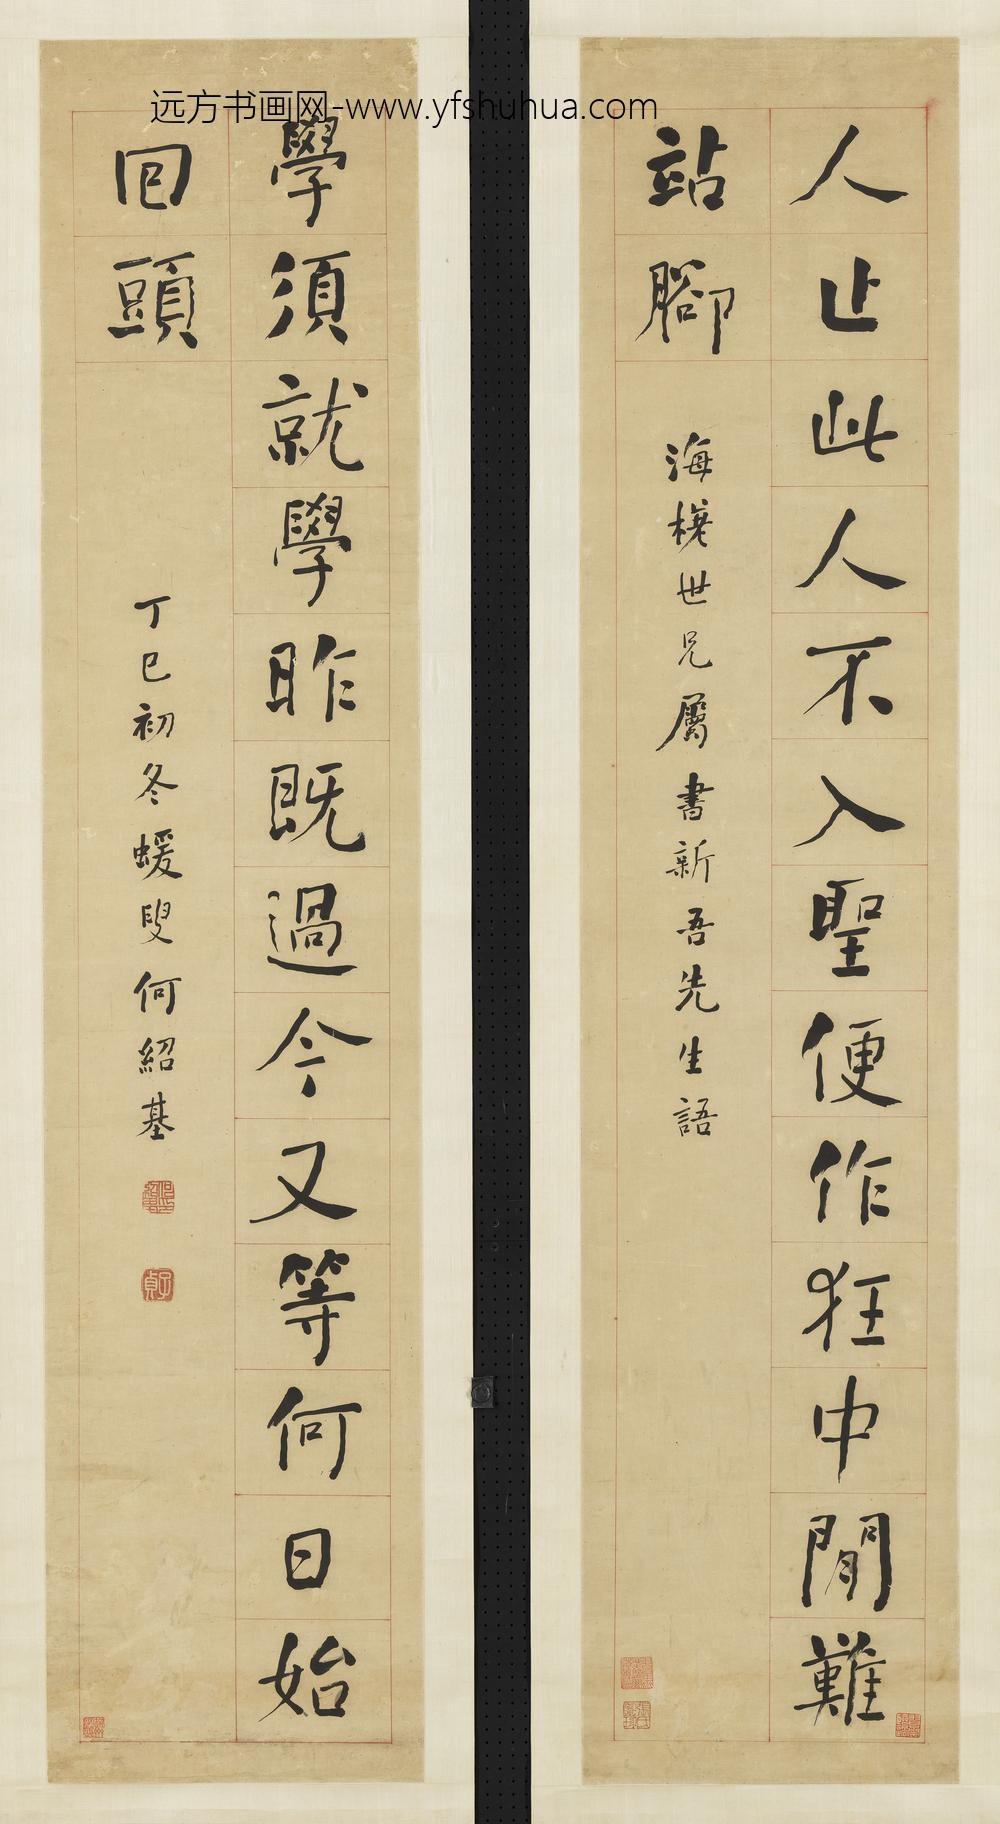 远方书画网-www.yfshuhua.com
人止此人不入聖便作狂中閒難
站腳
海 世兄屬書新吾先生語
學須就學昨既過今又等何日始
囘頭
丁巳初冬蝯叟何紹基
子貞